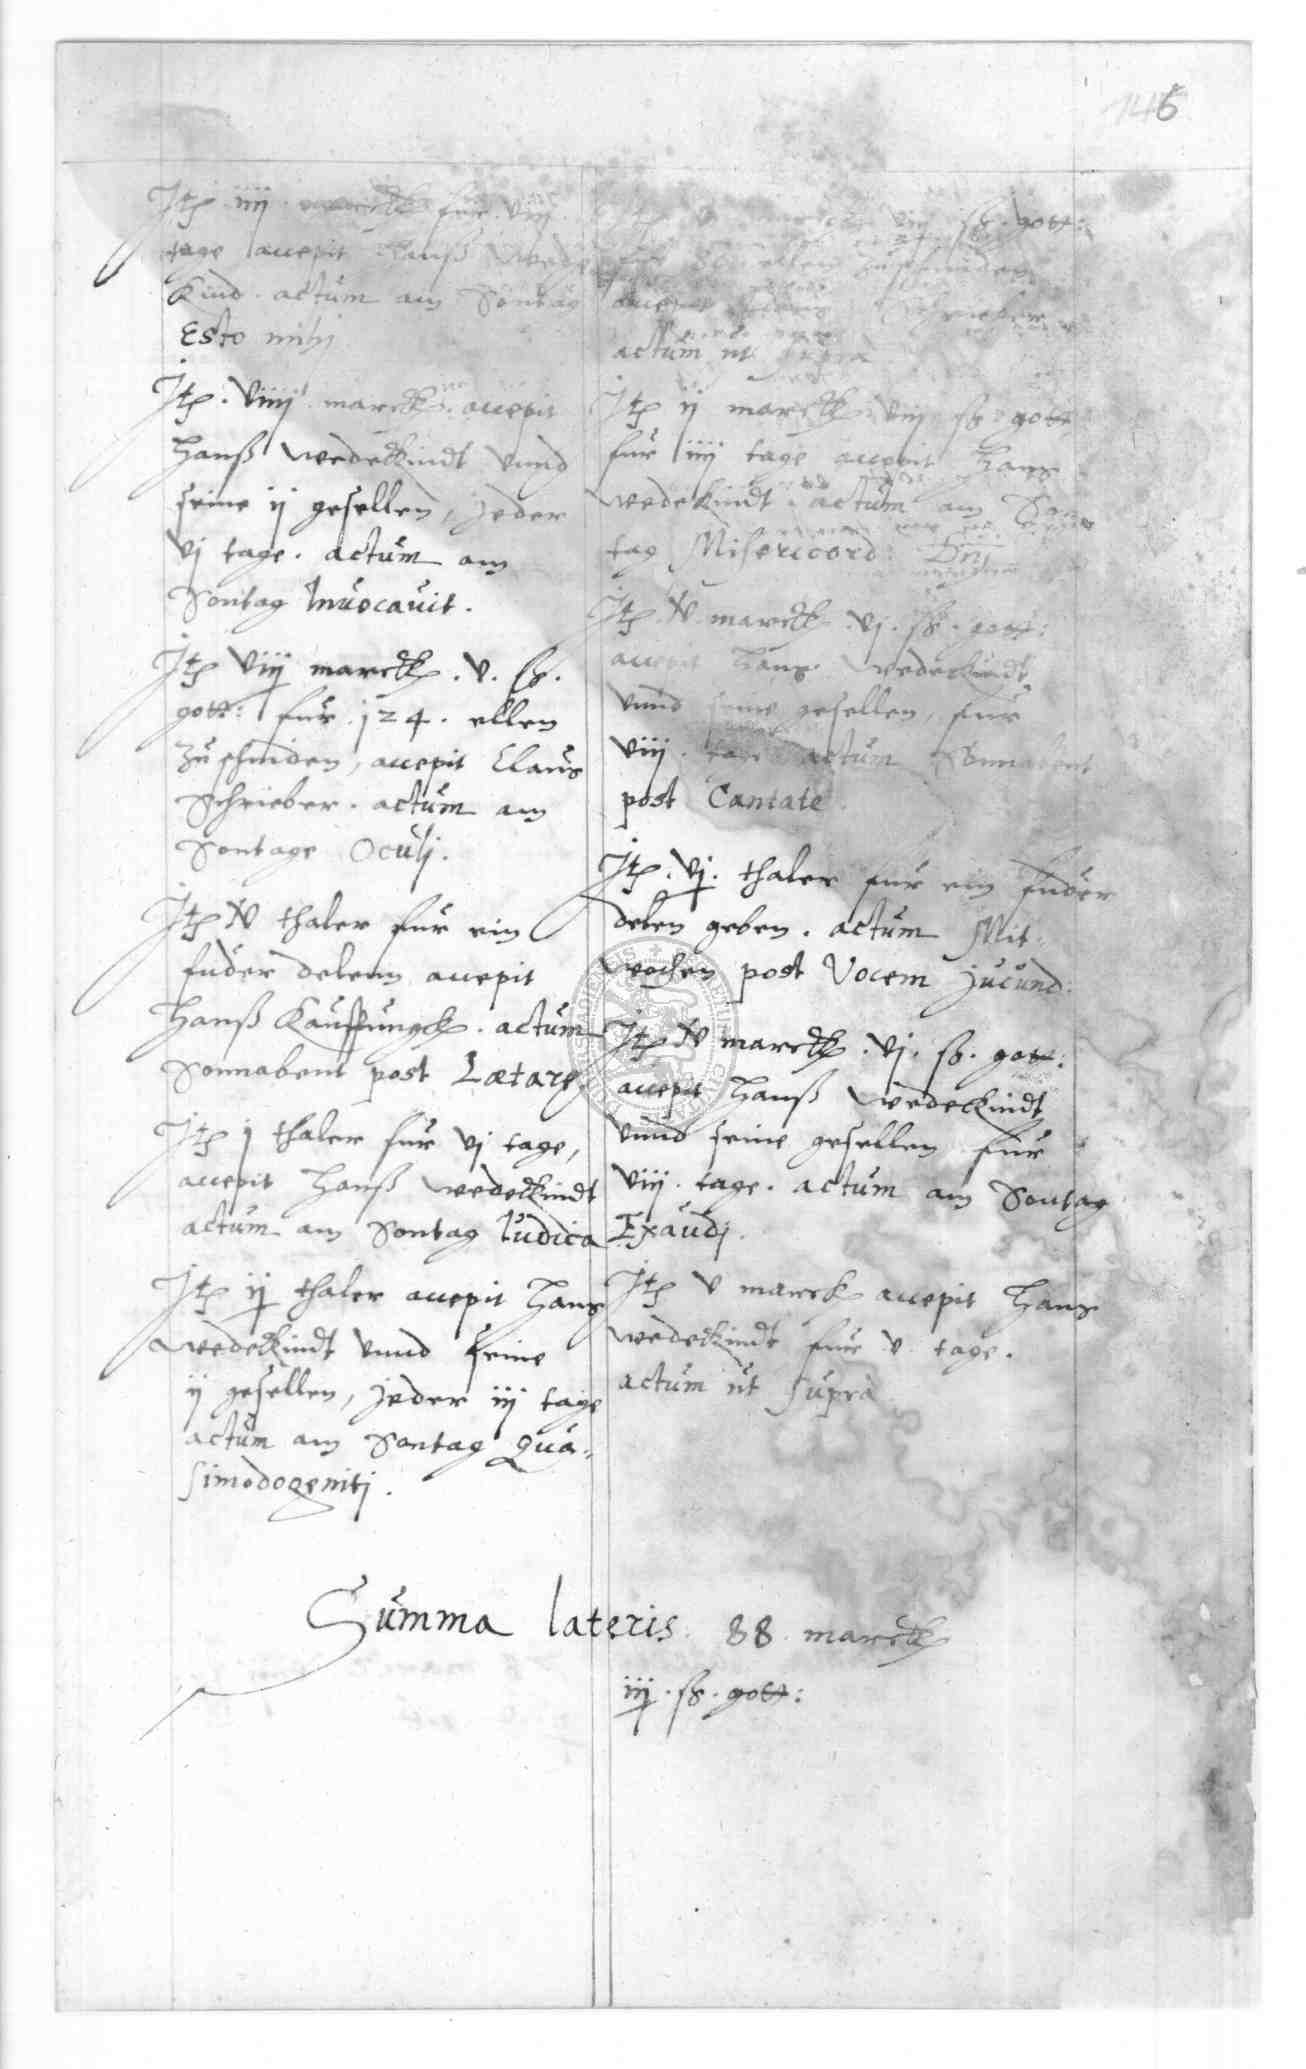 146
Jtē iiij marck fur viij
tage accepit Hanß Wede
Kind. actum am Sontag
Esto mihj
Jtē. viiij marck. accepit
Hanß Wedekindt vnnd
seine ij gesellen, jeder
vj tage. actum am
Sontag Inuocauit.
Jtē viij marck. v. ß.
gott: fur 124. ellen
zu schniden, accepit Claus
Schrieber. actum am
Sontage Oculj.
Jtē thaler fur ein
fuder delenn accepit
Hanß Kauffungck. actum
Sonnabent post Lætare
Jtē j thaler fur vj tage,
accepit Hanß Wedekindt
actum am Sontag Iudica
Jtē ij thaler accepit Hans
Wedekindt vnnd seine
ij gesellen, jeder iij tage
actum am Sontag Qua-
simodogenitj.
ß. gott:
ellen zuschniden
accepit Schrieber
actum ut supra
Jtē ij marck. viij ß. gott
fur iiij tage accepit Hans
Wedekindt. actum am Son
tag Misericord: Dnj
Jtē marck. vj. ß. gott:
accepit Hans Wedekindt
vnnd seine gesellen, fur
viij. tage actum Sonnabent
post Cantate
Jtē. vj. thaler fur ein fuder
delen geben. actum Mit-
wochen post Vocem jucund:
Jtē marck. vj. ß. gott:
accepit Hanß Wedekindt
vnnd seine gesellen fur
viij. tage. actum am Sontag
Exaudj.
Jtē v marck accepit Hans
Wedekindt fur v tage.
actum ut supra
Summa lateris: 88. marck
iij. ß. gott: